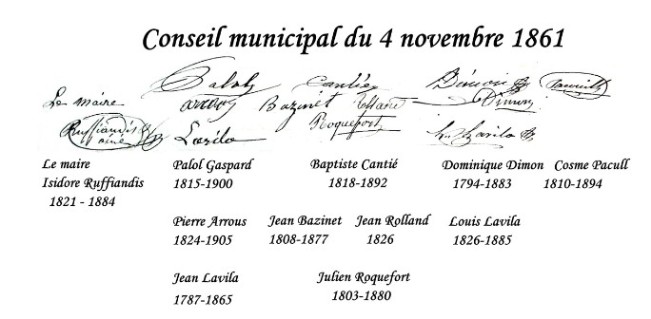 Conseil municipal du 4 novembre 1861
Palol Cantié
Le maire arrous Bazinet Dimon
Ruffiandis Lavila Roquefort
ainé
Le maire Palol Gaspard Baptiste Cantié Dominique Dimon Cosme Pacull
Isidore Ruffiandis 1815-1900 1818-1892 1794-1883 1810-1894
1821 - 1884
Pierre Arrous Jean Bazinet Jean Rolland Louis Lavila
1824-1905 1808-1877 1826 1826-1885
Jean Lavila Julien Roquefort
1787-1865 1803-1880